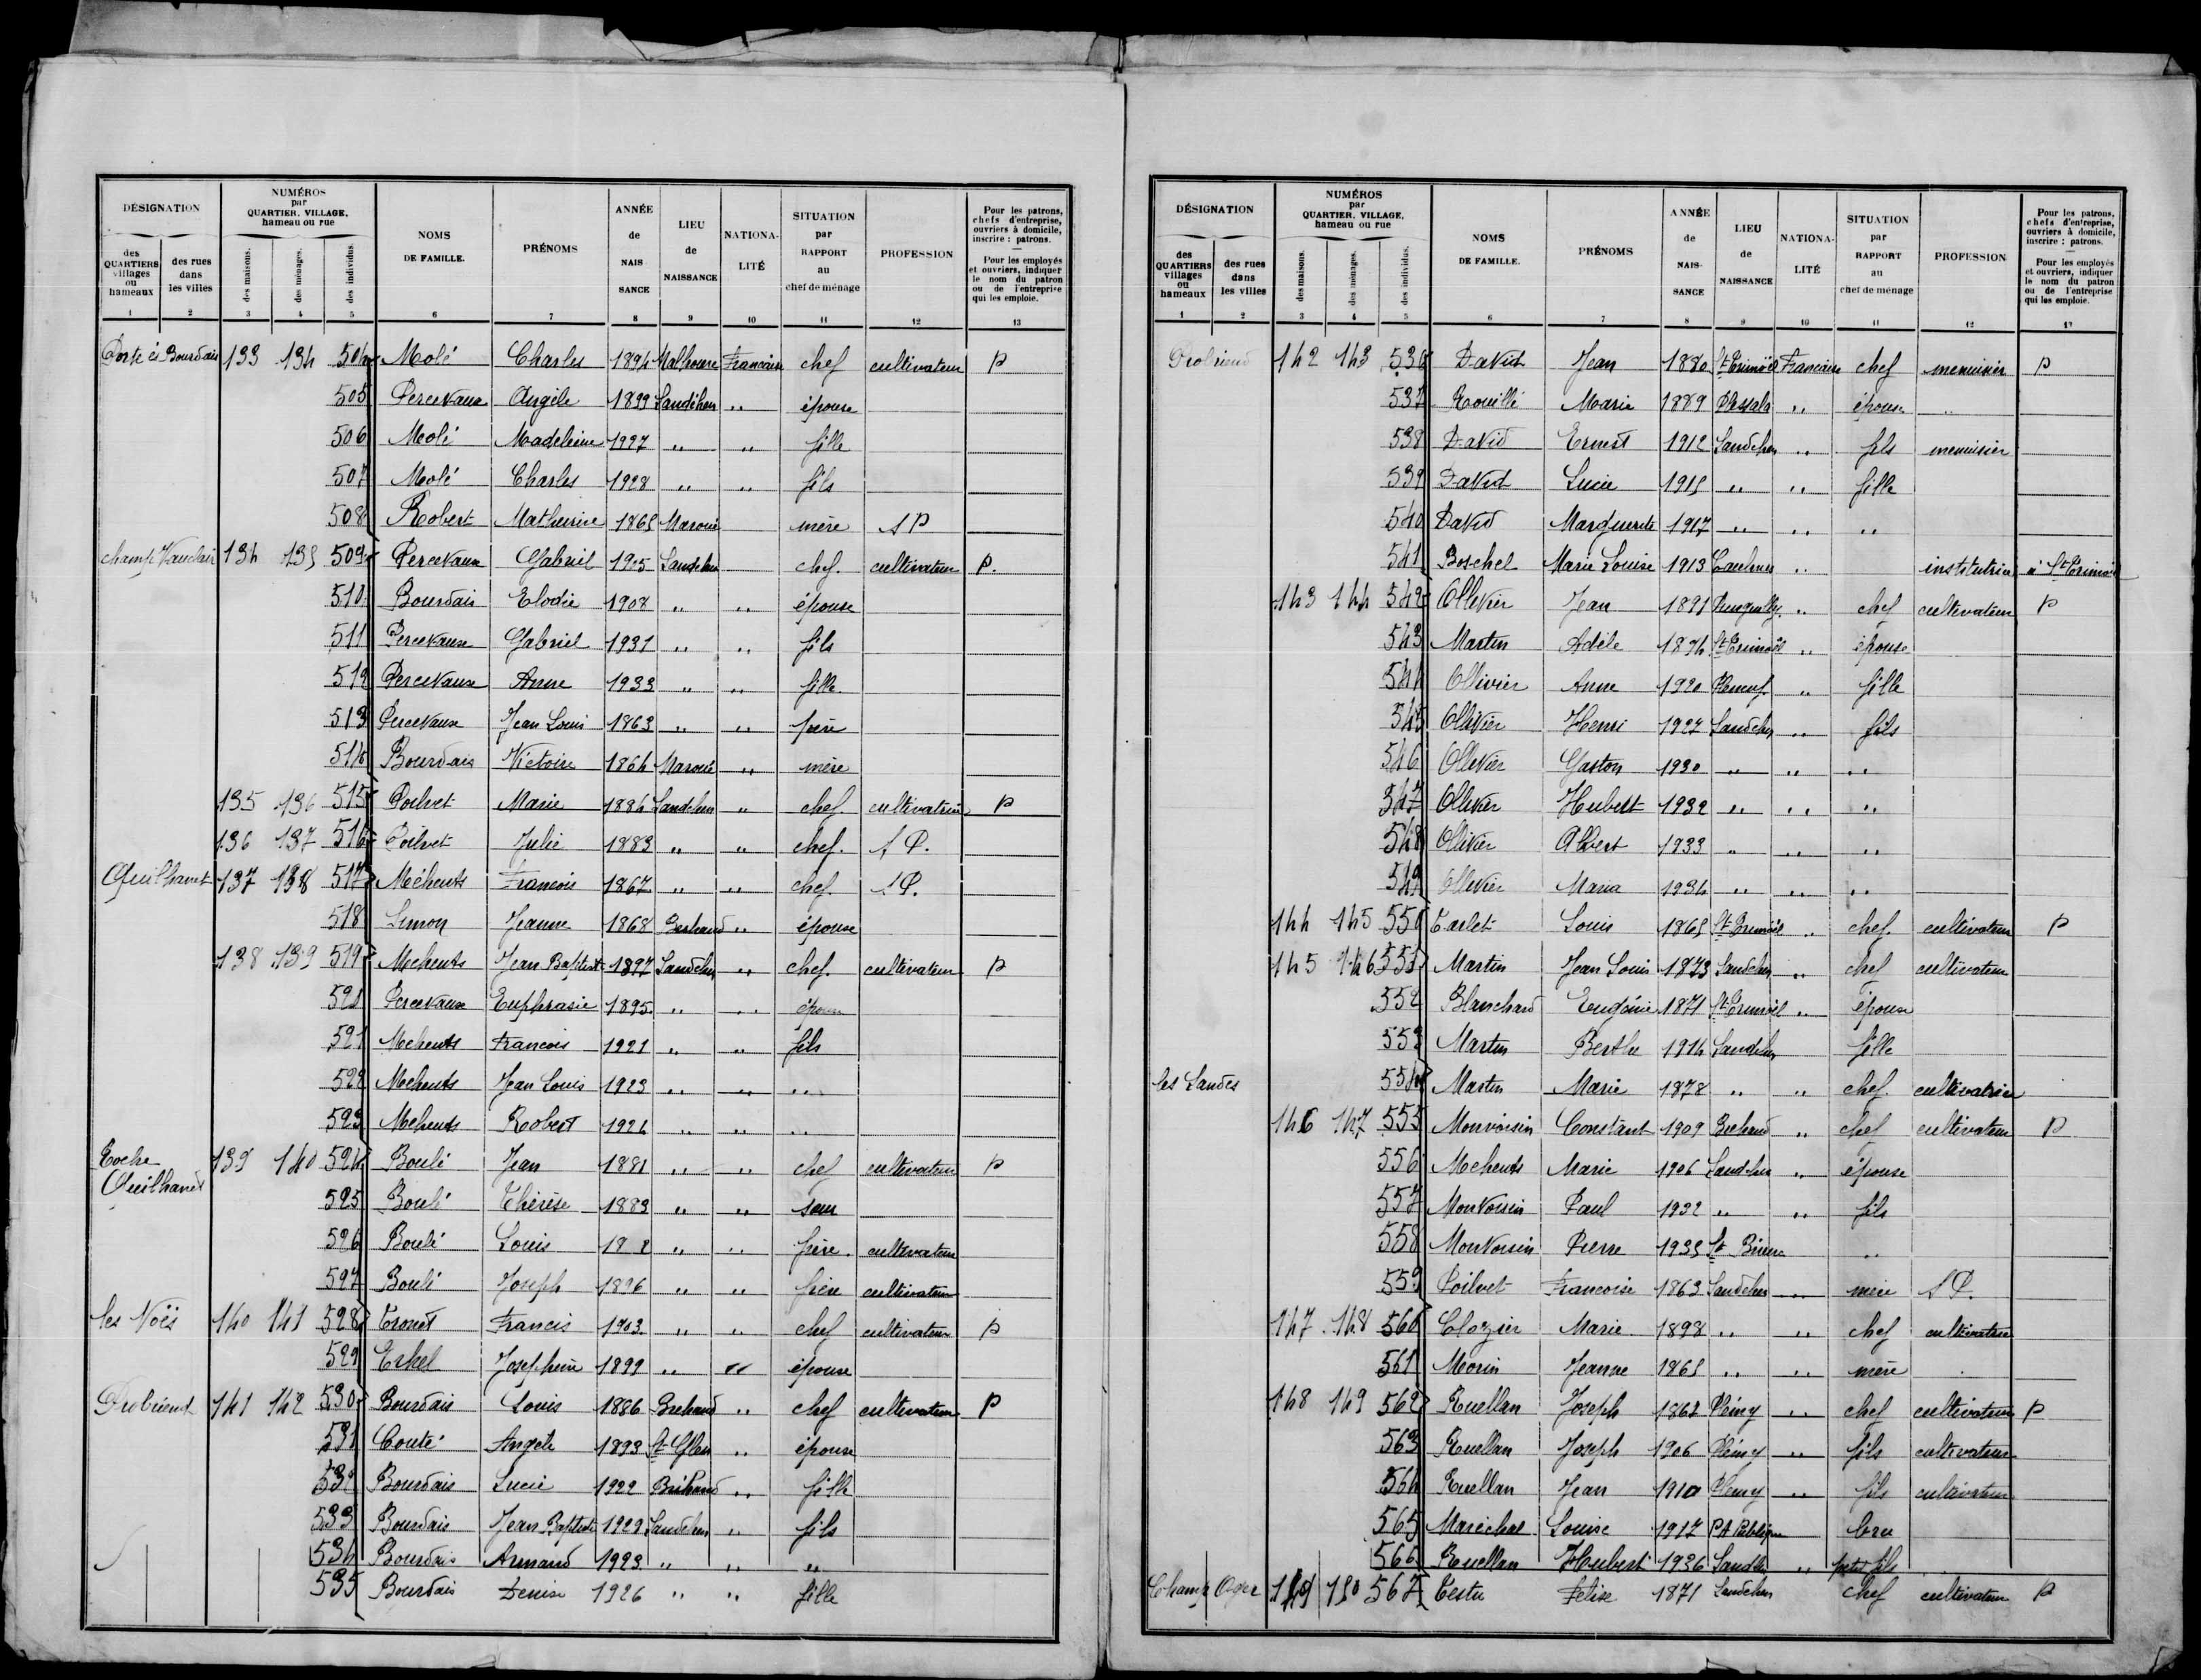 DÉSIGNATION
NUMÉROS par QUARTIER, VILLAGE, hameau ou rue
NOMS DE FAMILLE.
PRÉNOMS
ANNÉE de NAISSANCE
LIEU de NAISSANCE
NATIONALITÉ
SITUATION par RAPPORT au chef de ménage
PROFESSION
Pour les patrons, chefs d'entreprise, ouvriers à domicile, inscrire : patrons.
Pour les employés et ouvriers, indiquer le nom du patron ou de l'entreprise qui les emploie.
des QUARTIERS villages ou hameaux
des rues dans les villes
des maisons.
des ménages.
des individus.
1 2 3 4 5 6 7 8 9 10 11 12 13
Porte ès Bourdais 133 134 504 Molé Charles 1894 Malhoure Francaise chef cultivateur P
505 Percevaux Angèle 1899 Landéhen " épouse
506 Molé Madeleine 1927 " " fille
507 Molé Charles 1928 " " fils
508 Robert Mathurine 1865 Maroué mère S P
champ Vauclair 134 135 509 Percevaux Gabriel 1905 Landehen chef. cultivateur P.
510 Bourdais Elodie 1908 " " épouse
511 Percevaux Gabriel 1931 " " fils
512 Percevaux Anne 1933 " " fille
513 Percevaux Jean Louis 1863 " " père
514 Bourdais Victoire 1864 Maroué " mère
135 136 515 Poilvet Marie 1886 Landehen " chef. cultivatrice P
136 137 516 Poilvet Julie 1883 " " chef. S P.
Quilhanet 137 138 517 Méheuts Francois 1867 " " chef S P.
518 Lemon Jeanne 1868 Brehand " épouse
138 139 519 Meheuts Jean Baptiste 1897 Landehen " chef. cultivateur P
520 Percevaux Euphrasie 1895 " " épouse
521 Meheuts Francois 1921 " " fils
522 Meheuts Jean Louis 1923 " " "
523 Meheuts Robert 1926 " " "
Quilhanet 139 140 524 Boulé Jean 1881 " " chef cultivateur P
525 Boulé Thérèse 1883 " " sœur
526 Boulé Louis 18 " " frère. cultivateur
527 Boulé Joseph 1896 " " frère cultivateur
les Noës 140 141 528 Francis 1903 " " chef cultivateur P
529 Erhel Josephine 1899 " " épouse
141 142 530 Bourdais Louis 1886 Brehand " chef cultivateur P
531 Couté Angèle 1893 St Glen " épouse
532 Bourdais Lucie 1922 Bréhand " fille
533 Bourdais Jean Baptiste 1929 Landehen " fils
534 Bourdais Armand 1923 " " "
535 Bourdais Denise 1926 " " fille
DÉSIGNATION
NUMÉROS par QUARTIER, VILLAGE, hameau ou rue
NOMS DE FAMILLE.
PRÉNOMS
ANNÉE de NAISSANCE
LIEU de NAISSANCE
NATIONALITÉ
SITUATION par RAPPORT au chef de ménage
PROFESSION
Pour les patrons, chefs d'entreprise, ouvriers à domicile, inscrire : patrons.
Pour les employés et ouvriers, indiquer le nom du patron ou de l'entreprise qui les emploie.
des QUARTIERS villages ou hameaux
des rues dans les villes
des maisons.
des ménages.
des individus.
1 2 3 4 5 6 7 8 9 10 11 12 13
142 143 536 David Jean 1880 St Trimoël Francaise chef menuisier P
537 Rouillé Marie 1889 Plessala " épouse "
538 David Ernest 1912 Landehen " fils menuisier
539 David Lucie 1915 " " fille
540 David Marguerite 1917 " " "
541 Boschel Marie Louise 1913 Caulnes " institutrice à St Trimoël
143 144 542 Ollivier Jean 1891 Penguilly " chef cultivateur P
543 Martin Adèle 1894 St Trimoël " épouse
544 Ollivier Anne 1920 Pléneuf " fille
545 Ollivier Henri 1927 Landehen " fils
546 Ollivier Gaston 1930 " " "
547 Ollivier Hubert 1932 " " "
548 Ollivier Albert 1933 " " "
549 Ollivier Maria 1934 " " "
144 145 550 Louis 1865 St Trimoël " chef. cultivateur P
145 146 551 Martin Jean Louis 1873 Landehen " chef cultivateur
552 Blanchard Eugénie 1871 St Trimoël " épouse
553 Martin Berthe 1914 Landehen fille
les Landes 554 Martin Marie 1878 " " chef. cultivatrice
146 147 555 Monvoisin Constant 1909 Brehand " chef cultivateur P
556 Meheuts Marie 1906 Landehen " épouse
557 Monvoisin Paul 1932 " " fils
558 Monvoisin Pierre 1935 St Brieuc "
559 Poilvet Francoise 1863 Landehen " mère S P.
147 148 560 Clozier Marie 1898 " " chef cultivatrice
561 Morin Jeanne 1865 " " mère
148 149 562 Ruellan Joseph 1862 Plémy " chef cultivateur P
563 Ruellan Joseph 1906 Plémy " fils cultivateur
564 Ruellan Jean 1910 Plemy " fils cultivateur
565 Maréchal Louise 1917 PA Publique bru
566 Ruellan Hubert 1936 Landehen " petit fils
Champ Oger 149 150 567 Testu Felise 1871 Landehen chef cultivateur P